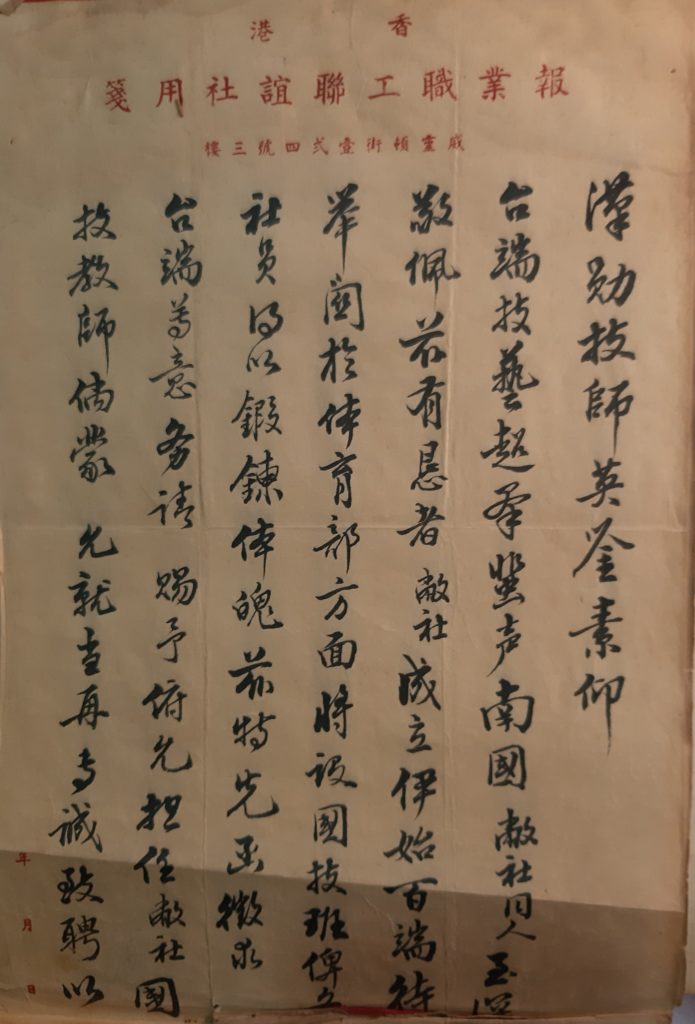 香港
報業職工聯誼社用箋
威靈頓街壹弍四號三樓
漢勋技師英鉴素仰
台端技藝超羣蜚声南國敝社同人至深
敬佩兹有恳者敝社成立伊始百端待
举関於体育部方面將設國技班俾各
社員得以鍛鍊体魄兹特先函徵求
台端尊意务请賜予俯允担任敝社國
技教師倘蒙允就当再专诚致聘以
年月日